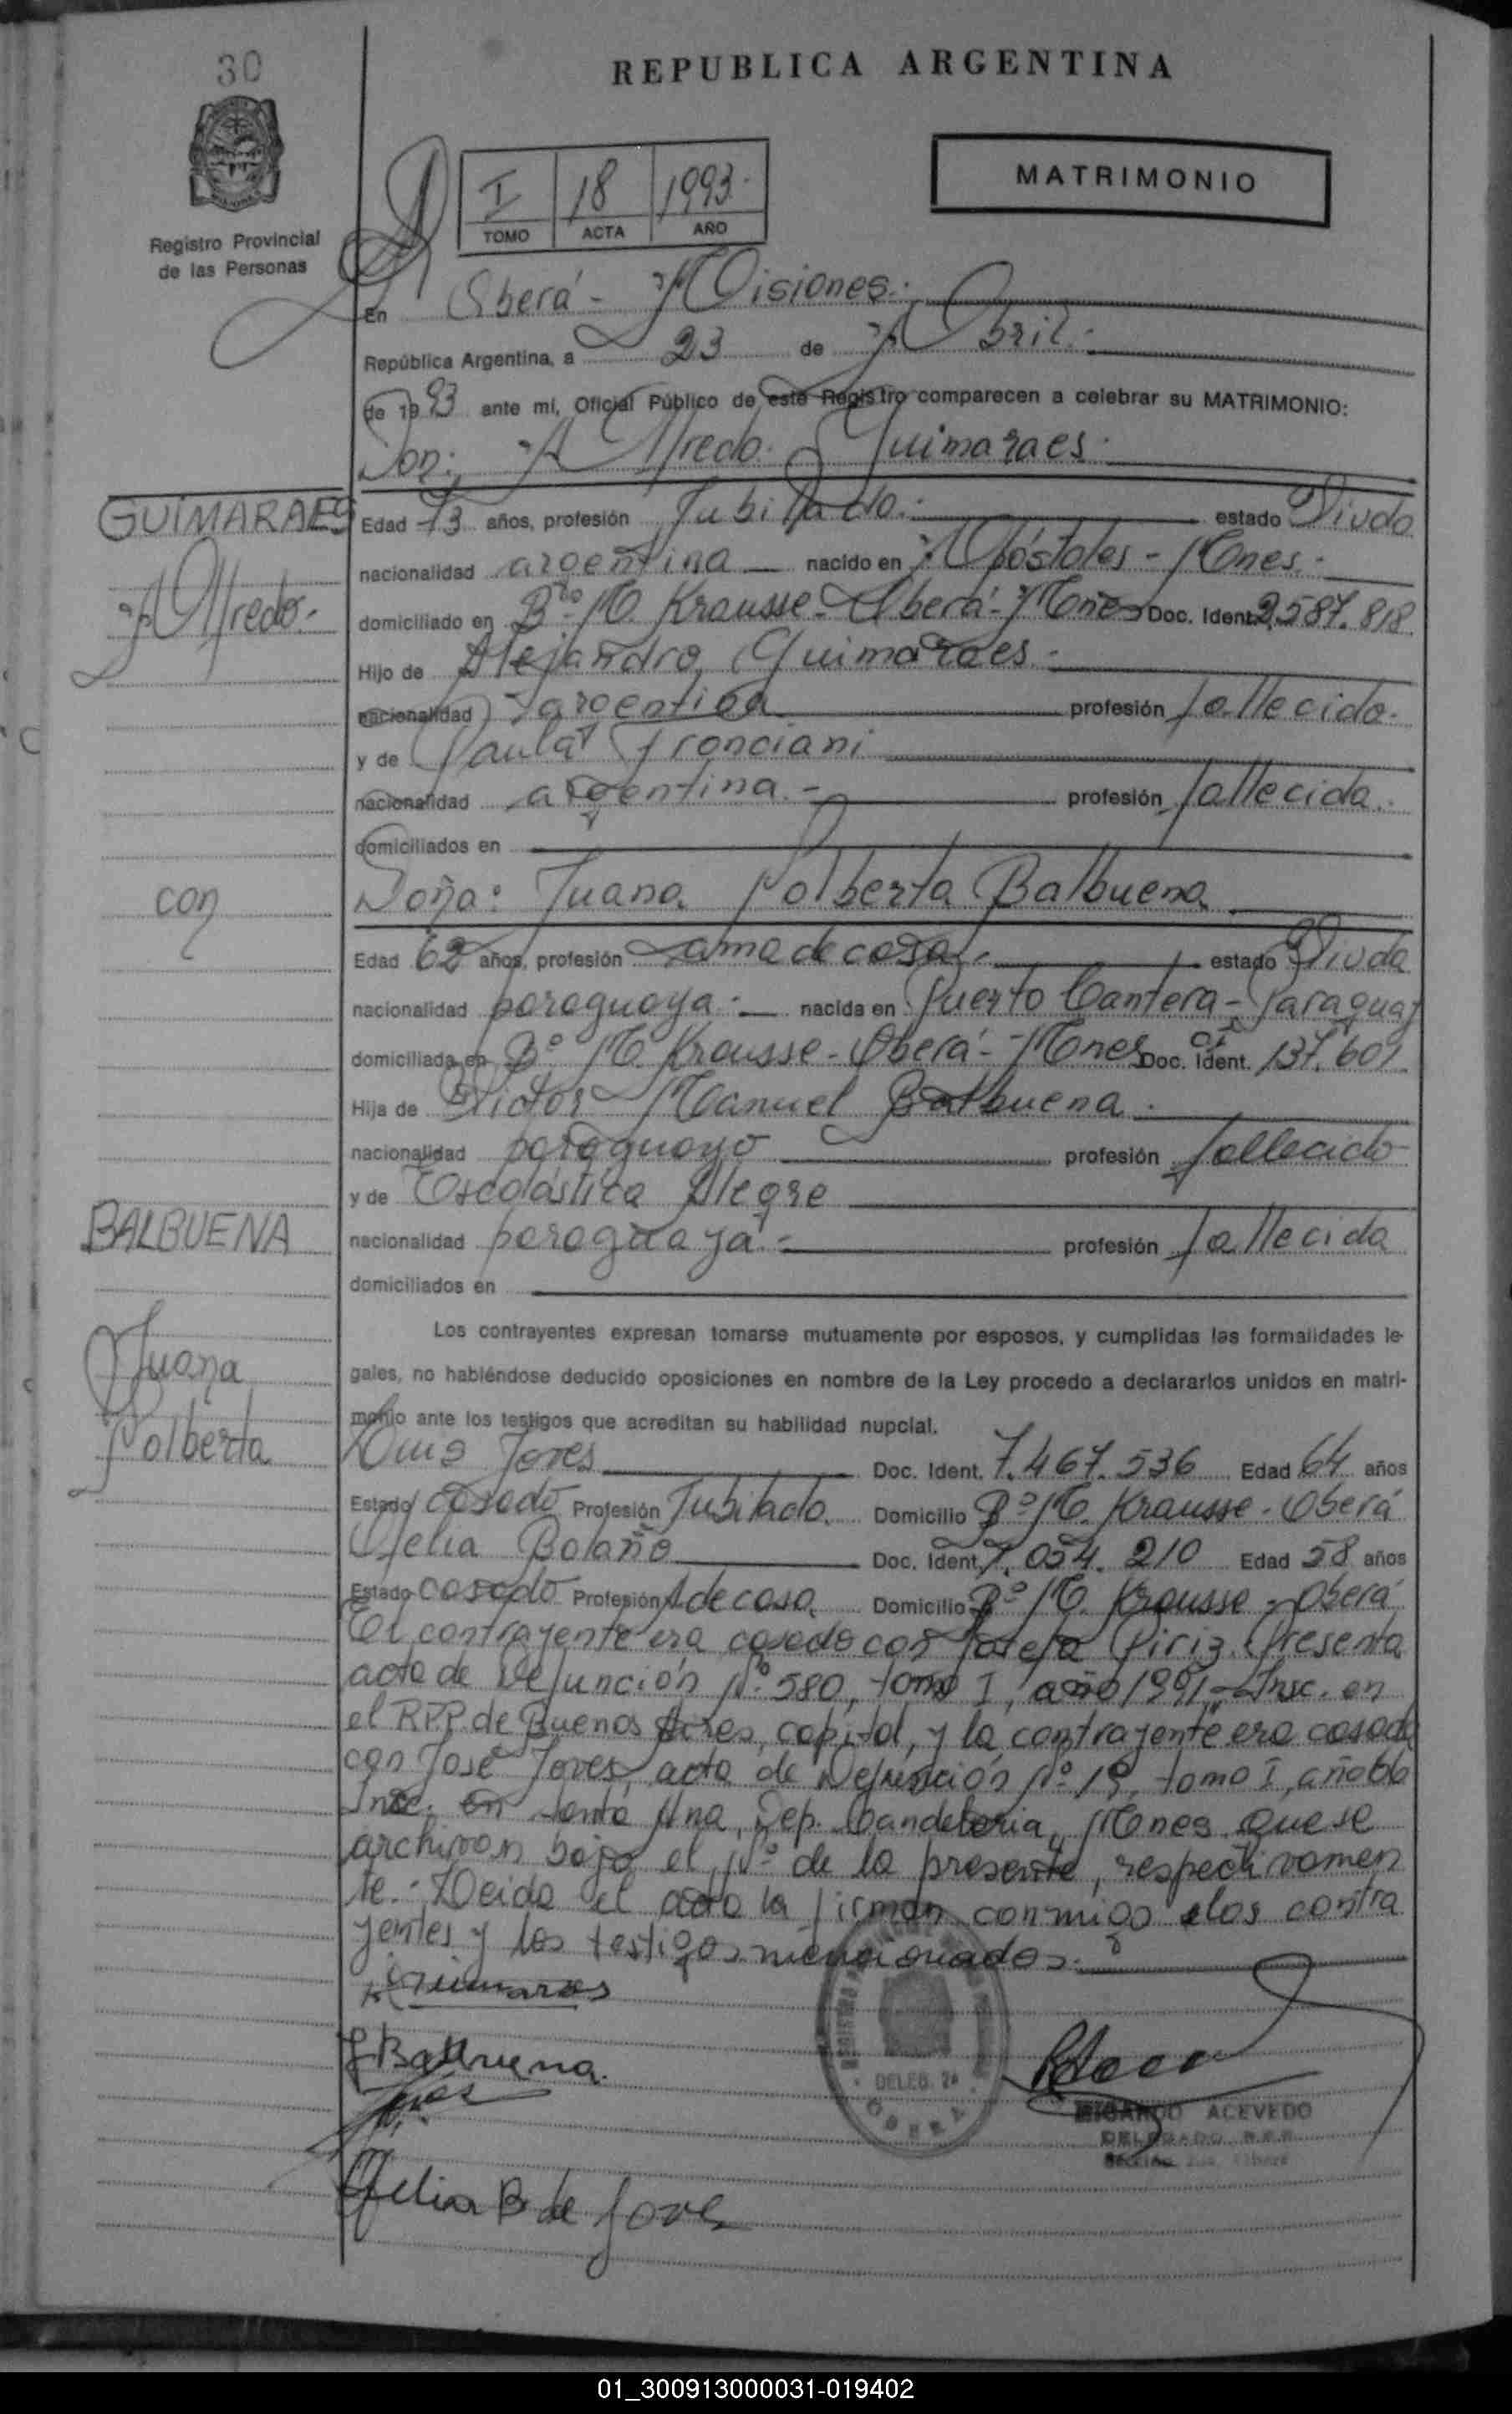 30
REPUBLICA ARGENTINA
Registro Provincial
de las Personas
I 18 1993.
TOMO ACTA AÑO
MATRIMONIO
En Oberá - Misiones.
República Argentina, a 23 de Abril.
de 1993 ante mí, Oficial Público de este Registro comparecen a celebrar su MATRIMONIO:
Don: Alfredo Guimaraes.
GUIMARAES
Alfredo.
Edad 73 años, profesión Jubilado. estado Viudo
nacionalidad argentina nacido en Apóstoles - Mones.
domiciliado en Bº M. Krausse - Oberá - Mones Doc. Ident. 2.587.818
Hijo de Alejandro Guimaraes.
nacionalidad argentina profesión fallecido.
y de Paula Fronciani
nacionalidad argentina. - profesión fallecida.
domiciliados en
con
Doña: Juana Polberta Balbuena
Edad 62 años, profesión ama de casa. estado Viuda
nacionalidad paraguaya. nacida en Puerto Cantera - Paraguay
domiciliada en Bº M. Krausse - Oberá - Mones Doc. Ident. CI 137.601
Hija de Victor Manuel Balbuena.
nacionalidad paraguayo profesión fallecido
y de Escolástica Alegre
nacionalidad paraguaya. - profesión fallecida
domiciliados en
BALBUENA
Juana
Polberta
Los contrayentes expresan tomarse mutuamente por esposos, y cumplidas las formalidades le-
gales, no habiéndose deducido oposiciones en nombre de la Ley procedo a declararlos unidos en matri-
monio ante los testigos que acreditan su habilidad nupcial.
Luis Joves Doc. Ident. 7.467.536 Edad 64 años
Estado casado Profesión Jubilado. Domicilio Bº M. Krausse - Oberá
Ofelia Bolaño Doc. Ident. 7.054.210 Edad 58 años
Estado casado Profesión A de casa. Domicilio Bº M. Krausse - Oberá
El contrayente era casado con Josefa Piriz. Presenta
acta de Defunción Nº 580, tomo I, año 1991, Insc. en
el R.P.P. de Buenos Aires, capital, y la contrayente era casada
con José Joves, acta de Defunción Nº 19, tomo I, año 66
Insc. en Santa Ana, Dep. Candelaria, Mones que se
archivan bajo el Nº de la presente, respectivamen
te. - Leida el acta la firman conmigo los contra
yentes y los testigos mencionados. -
Guimaraes
J Balbuena.
Joves
Ofelia B de Joves
DELEG. 2ª
OBERA
RICARDO ACEVEDO
DELEGADO R.P.P.
01_300913000031-019402